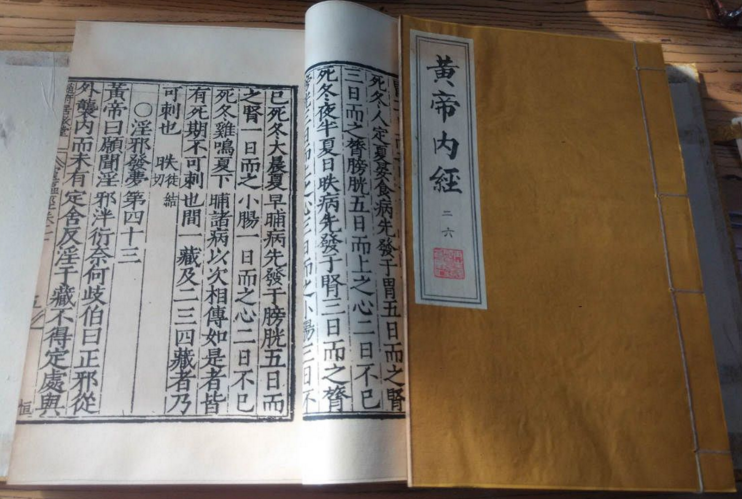 黃帝內經
二六
死冬人定夏晏食病先發于胃五日而之腎
三日而之膂膀胱五日而上之心二日不已
死冬夜半夏日昳病先發于腎三日而之膂
三日而上之心三日而之小腸三日不
已死冬大晨夏早晡病先發于膀胱五日而
之腎一日而之小腸一日而之心二日不已
死冬雞鳴夏下晡諸病以次相傳如是者皆
有死期不可刺也間一藏及二三四藏者乃
可刺也 昳徒結切
〇淫邪發夢第四十三
黃帝曰願聞淫邪泮衍奈何歧伯曰正邪從
外襲內而未有定舍反淫于藏不得定處與
恒